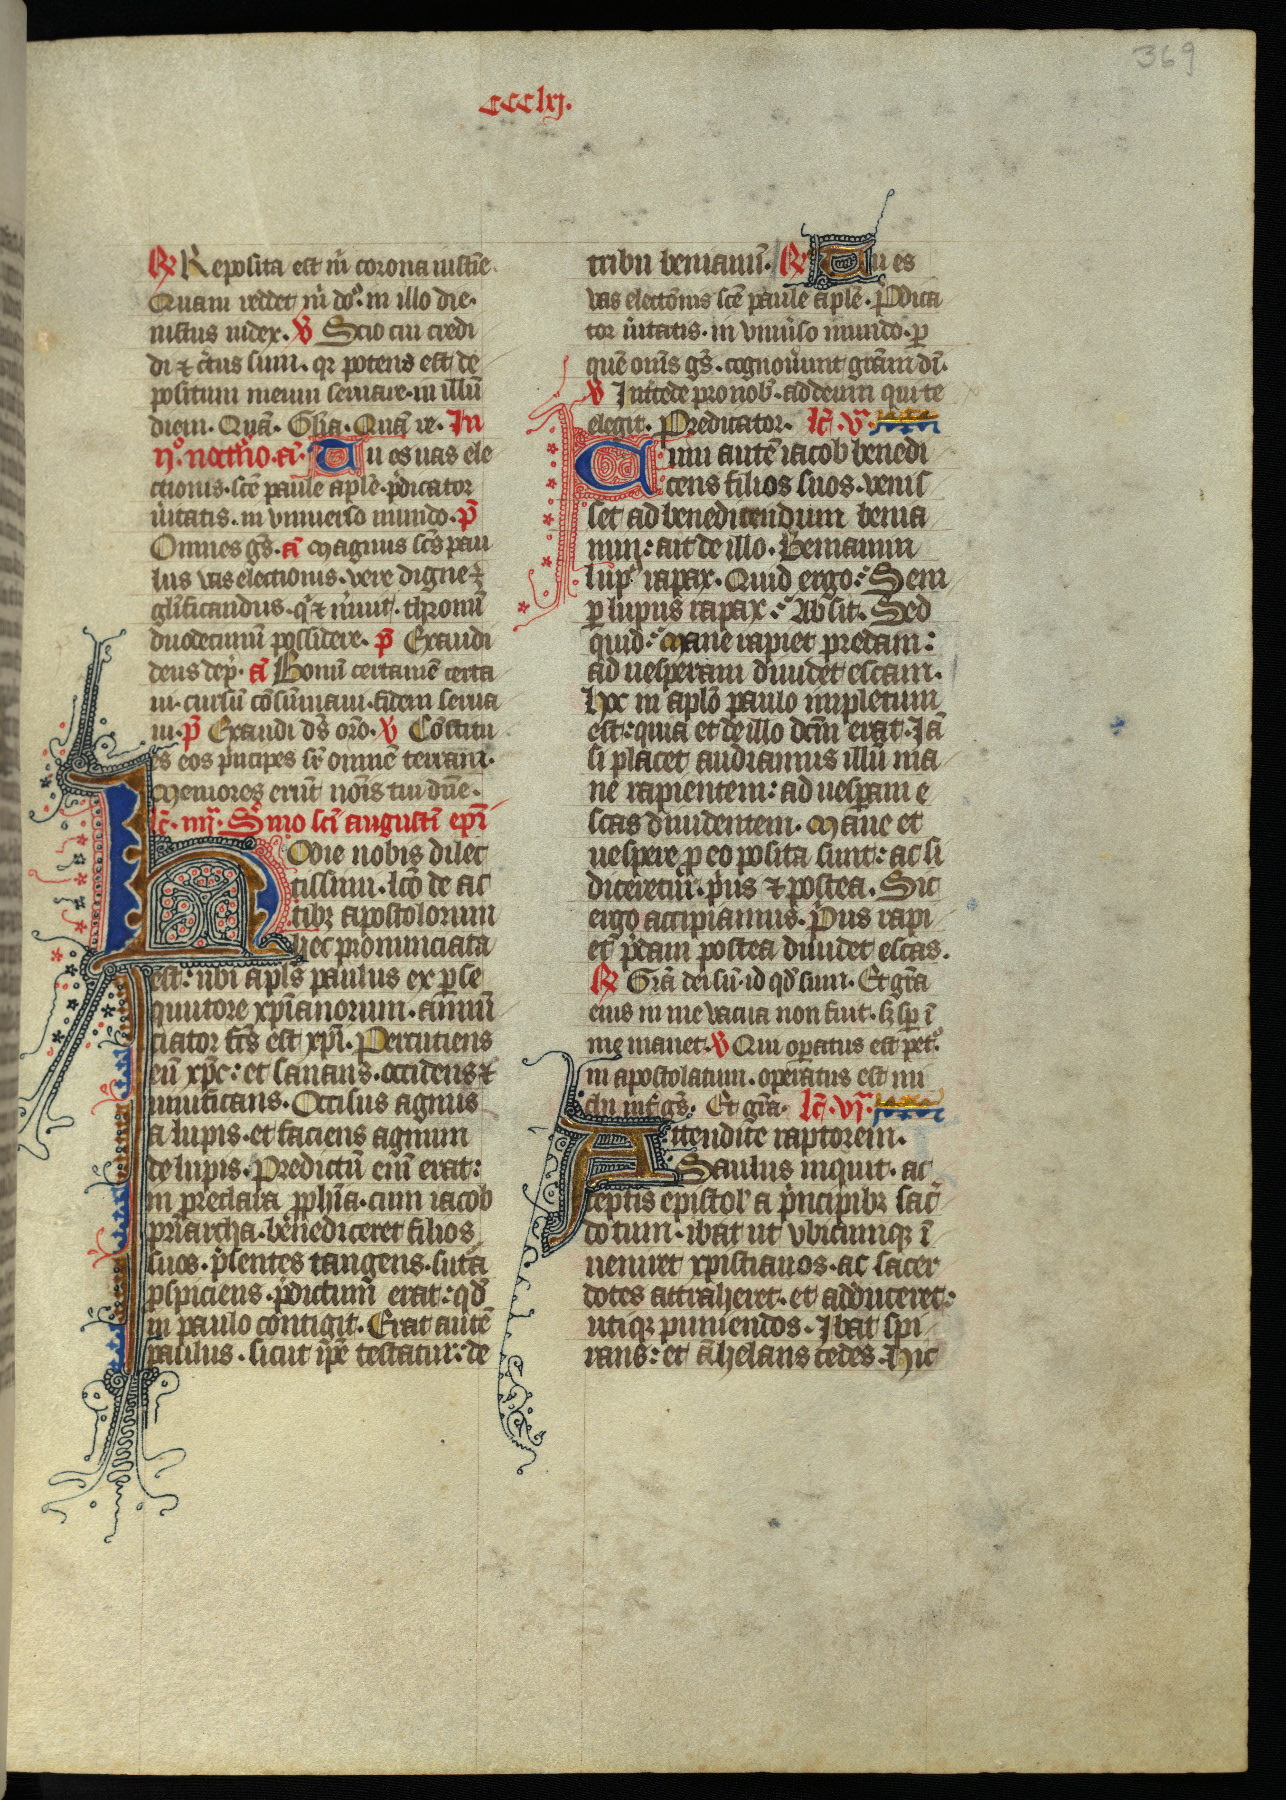 369
CCClxj.
R Reposita est m̄ corona iusticie
Quam reddet m̄ dn̄s. in illo die.
iustus iudex. V Scio cui credi
di ⁊ c̄tus sum. qr potens est de
positum meum seruare. in illū
diem. Quā. Gl̄ia. Quā re. In
ijº. noct̄rnº. an̄. Tu es uas ele
ctionis. scē paule apl̄e. p̄dicator
ūitatis. in vniuerso mundo. p̄
Omnes gs̄. an̄ Magnus sc̄s pau
lus vas electionis. vere digne ē
gl̄ificandus. q̇ ⁊ m̄uit. thronū
duodecimū possidere. p̄ Exaudi
deus dep̄. an̄ Bonū certamē certa
ui. cursū cōsūmaui. fidem serua
ui. p̄ Exaudi ds̄ or̄o. V Cōstitu
es eos p̄ncipes sr̄ omnē terram.
Memores erūt nōis tui dn̄e.
lc̄. iiij. Smo sc̄i augustī epī
Odie nobis dilec
tissimi. lc̄o de ac
tibꝫ apostolorum
hec pronunciata
est: ubi apl̄s paulus ex p̱se
quutore xp̄ianorum. annū
ciator fc̄s est xp̄i. Percutiens
eū xp̄c: et sanans. occidens ⁊
uiuificans. Occisus agnus
a lupis. et faciens agnum
de lupis. Predictū enī erat:
in preclara ꝓph̄ia. cum iacob
pr̄iarcha. bn̄ediceret filios
suos. p̄sentes tangens. futa
p̱spiciens. p̄dictum erat: qd̄
in paulo contigit. Erat autē
paulus. sicut ip̄e testatur: de
tribu beniamī. R Tu es
vas elect̄onis scē paule apl̄e. p̄dica
tor ūitatis. in vniūso mundo. p̱
quē om̄s gs̄. cognoūunt grām dī.
V Int̄cede pro nob̄. ad deum qui te
elegit. Predicator. lc̄. v.
Cum autē iacob benedi
cens filios suos. venis
set ad benedicendum benia
min: ait de illo. Beniamin
lupꝰ rapax. Quid ergo? Sem
p̱ lupus rapax? Absit. Sed
quid? Mane rapiet predam:
ad uesperam diuidet escam.
Hoc in apl̄o paulo impletum
est: quia et de illo dc̄m erat. Jā
si placet audiamus illū ma
ne rapientem: ad uesp̱am e
scas diuidentem. Mane et
uespere ꝓ eo posita sunt: ac si
diceretur. p̄us ⁊ postea. Sic
ergo accipiamus. p̄us rapi
et p̄dam postea diuidet escas.
R Grā dei sū. id qd̄ sum. Et gr̄a
eius in me vacua non fuit. sꝫ sp̱ ī
me manet. V Qui operatus est pet̄º.
in apostolatum. operatus est mi
chi int̄ gs̄. Et gr̄a. lc̄. vj.
Attendite raptorem.
Saulus inquit. ac
ceptis epistol' a p̄ncipibꝫ sac̄
dotum. ibat ut vbicumqꝫ ī
ueniret xpistianos. ac sacer
dotes attraheret. et adduceret:
utiqꝫ puniendos. Ibat spi
rans: et āhelans cedes. Hic